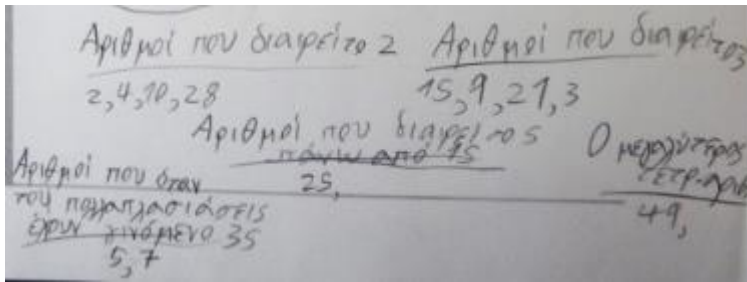 Αριθμοί που διαιρεί το 2
2,4,10,28
Αριθμοί που διαιρεί το 3
15,9,21,3
Αριθμοί που διαιρεί το 5
πάνω από 15
25,
Ο μεγαλύτερος
τετρ.αριθ
49,
Αριθμοί που όταν
τους πολλαπλασιάσεις
έχουν γινόμενο 35
5,7